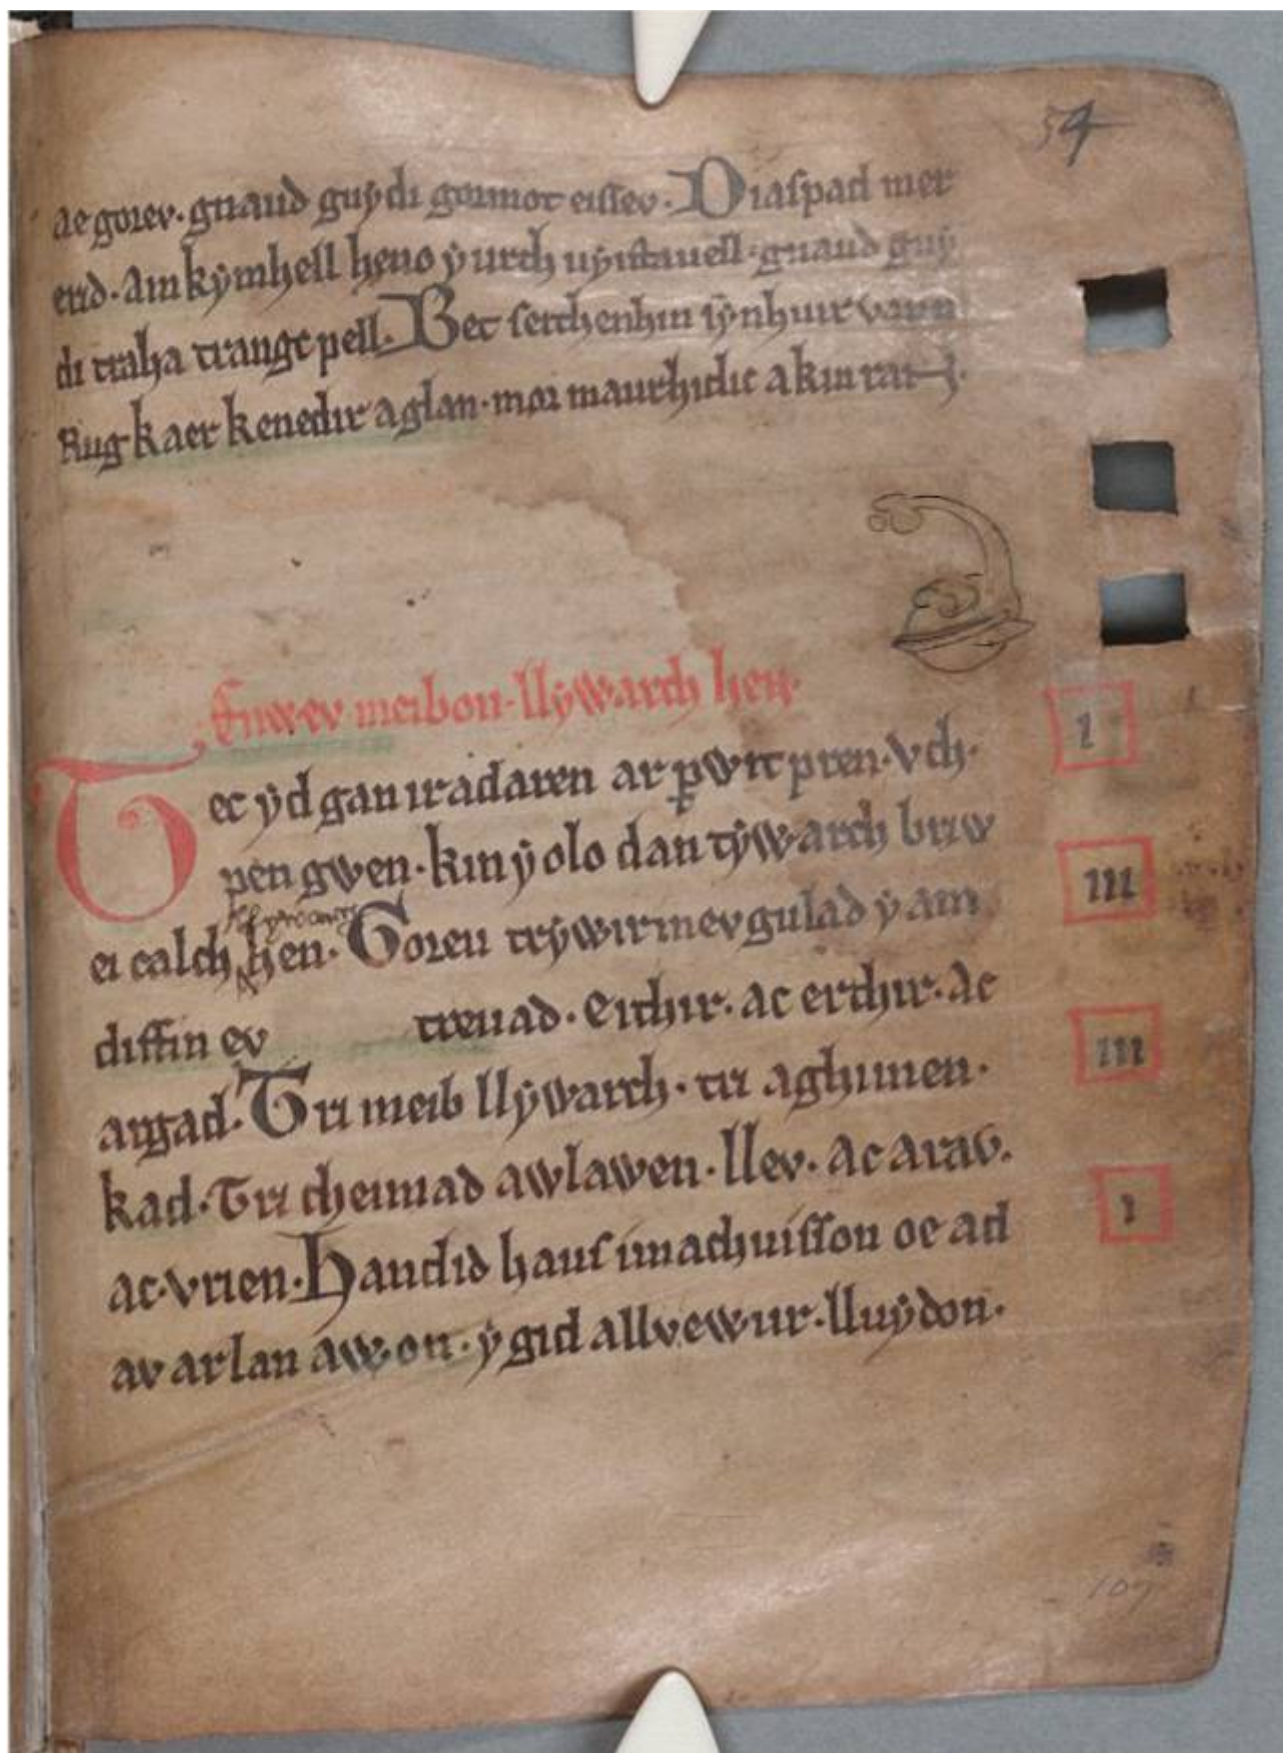 54
ae gorev. gnaud guydi gormot eissev. Diaspad mer
erid. am kymhell heno y urth uyistauell. gnaud guy
di traha trangc pell. Bet seithenhin synhuir vann
Rug kaer kenedir a glan. mor maurhidic a kinran.
Enwev meibon. llywarch hen.
I
Tec yd gan ir adaren ar pwrit pren. vch.
pen gwen. kin y olo dan tywarch briw
III
llywarch
ei calch hen. Goreu trywir mev gulad y am
diffin ev treuad. Eithir. ac erthir. ac
III
argad. Tri meib llywarch. tri aghimen.
kad. Tri cheimad awlawen. llev. ac arav.
I
ac. vrien. Handid haus imachuisson oe ad
av ar lan awon. y gid a llvewur. lluydon.
107